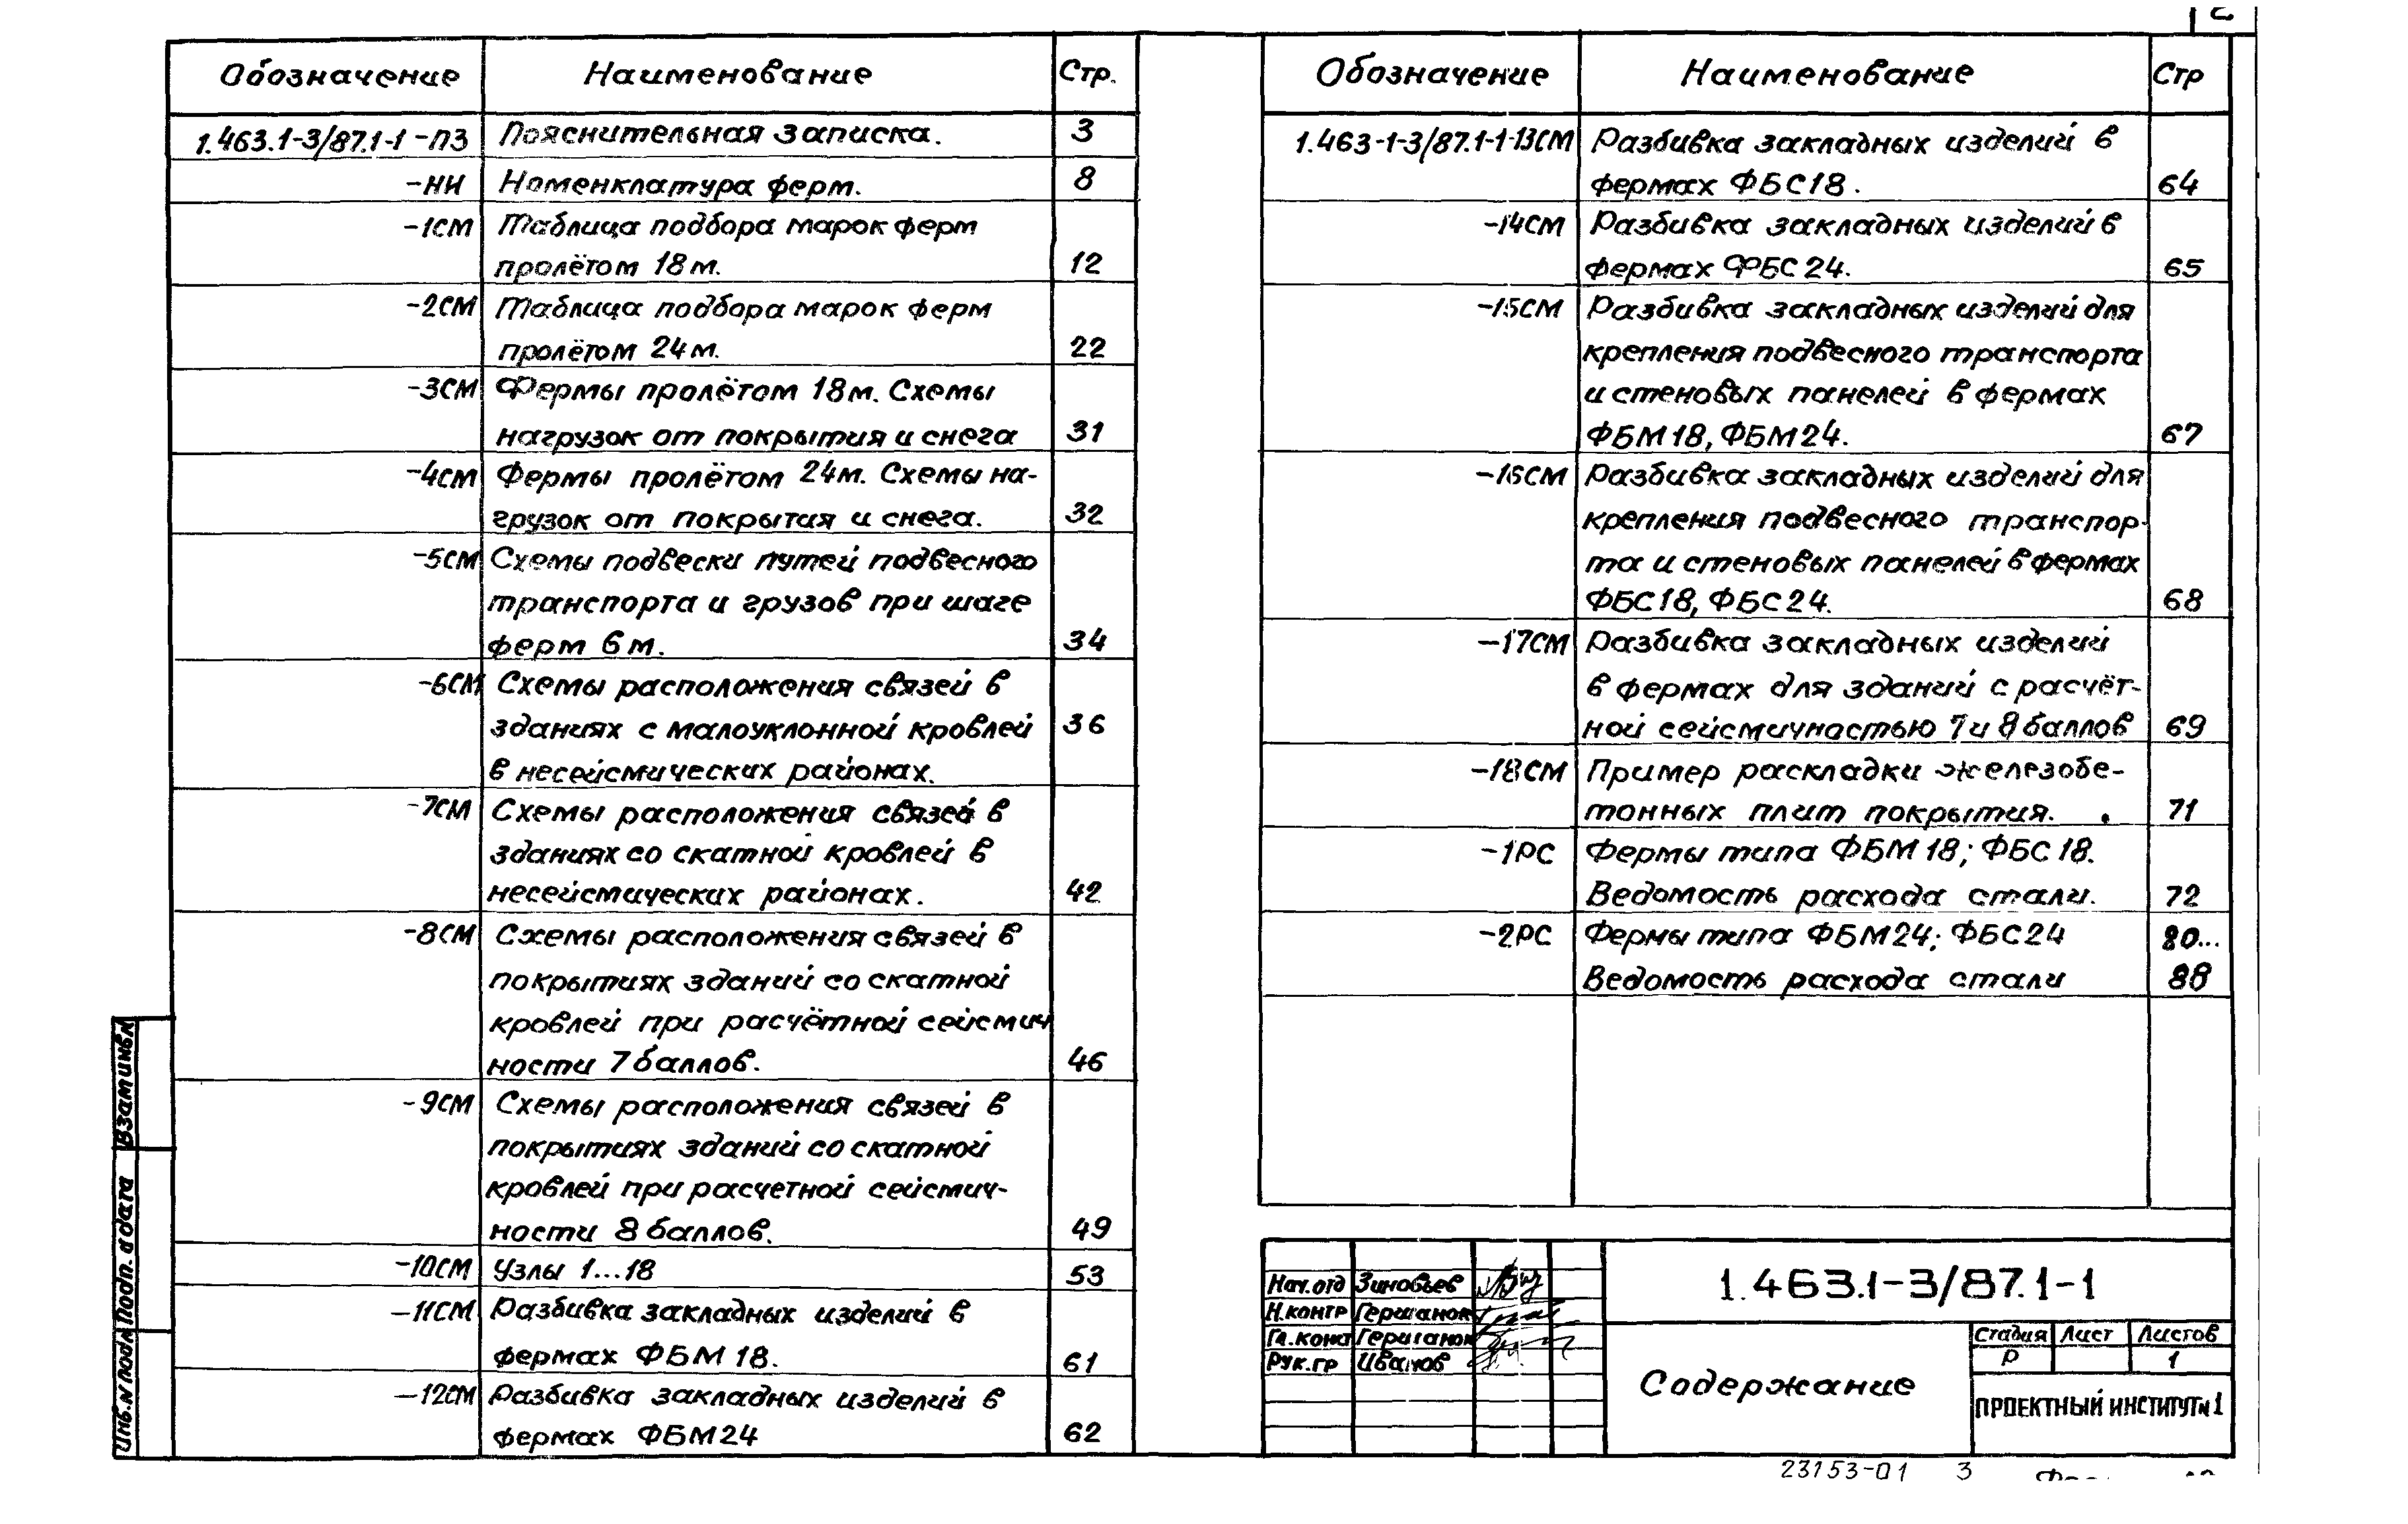 Обозначение Наименование Стр.
1.463.1-3/87.1-1 -ПЗ Пояснительная записка. 3
-НИ Номенклатура ферм. 8
-1СМ Таблица подбора марок ферм
пролётом 18м. 12
-2СМ Таблица подбора марок ферм
пролётом 24м. 22
-3СМ Фермы пролётом 18м. Схемы
нагрузок от покрытия и снега 31
-4СМ Фермы пролётом 24м. Схемы на-
грузок от покрытия и снега. 32
-5СМ Схемы подвески путей подвесного
транспорта и грузов при шаге
ферм 6м. 34
-6СМ Схемы расположения связей в
зданиях с малоуклонной кровлей 36
в несейсмических районах.
-7СМ Схемы расположения связей в
зданиях со скатной кровлей в
несейсмических районах. 42
-8СМ Схемы расположения связей в
покрытиях зданий со скатной
кровлей при расчётной сейсмич
ности 7 баллов. 46
-9СМ Схемы расположения связей в
покрытиях зданий со скатной
кровлей при расчетной сейсмич-
ности 8 баллов. 49
-10СМ Узлы 1...18 53
-11СМ Разбивка закладных изделий в
фермах ФБМ 18. 61
-12СМ Разбивка закладных изделий в
фермах ФБМ24 62
Обозначение Наименование Стр
1.463-1-3/87.1-1-13СМ Разбивка закладных изделий в
фермах ФБС18. 64
-14СМ Разбивка закладных изделий в
фермах ФБС24. 65
-15СМ Разбивка закладных изделий для
крепления подвесного транспорта
и стеновых панелей в фермах
ФБМ18, ФБМ24. 67
-16СМ Разбивка закладных изделий для
крепления подвесного транспор-
та и стеновых панелей в фермах
ФБС18, ФБС24. 68
-17СМ Разбивка закладных изделий
в фермах для зданий с расчёт-
ной сейсмичностью 7 и 8 баллов 69
-18СМ Пример раскладки железобе-
тонных плит покрытия. 71
-1РС Фермы типа ФБМ18; ФБС18.
Ведомость расхода стали. 72
-2РС Фермы типа ФБМ24; ФБС24 80...
Ведомость расхода стали 88
Взам инв.№
Подп. и дата
Инв.№ подл
Нач.отд Зиновьев
Н.контр Гершанок
Гл.конс Гершанок
Рук.гр Иванов
1.463.1-3/87.1-1
Содержание
Стадия Лист Листов
Р 1
ПРОЕКТНЫЙ ИНСТИТУТ №1
23153-01 3